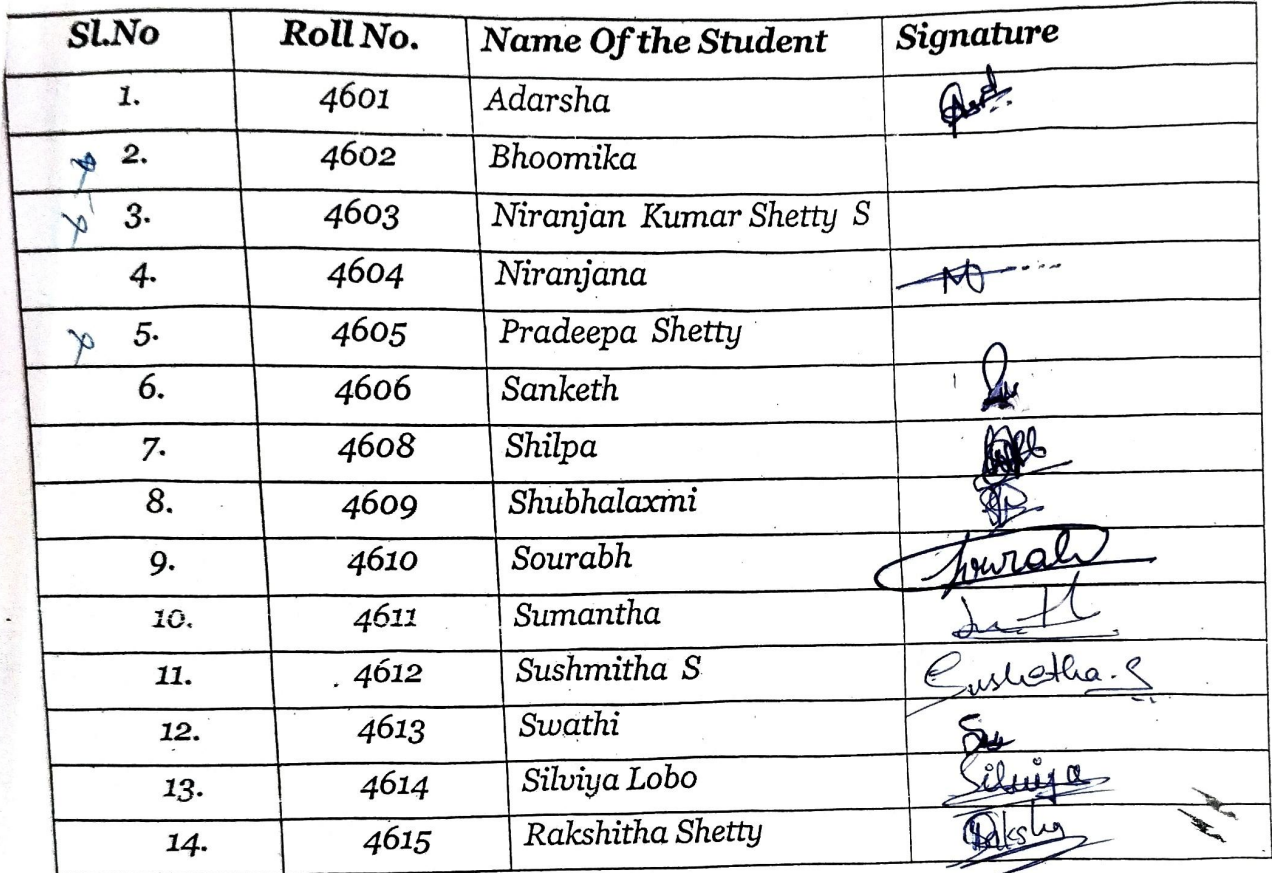 Sl.No Roll No. Name Of the Student Signature
1. 4601 Adarsha
x 2. 4602 Bhoomika
x 3. 4603 Niranjan Kumar Shetty S
4. 4604 Niranjana
x 5. 4605 Pradeepa Shetty
6. 4606 Sanketh
7. 4608 Shilpa
8. 4609 Shubhalaxmi
9. 4610 Sourabh Sourabh
10. 4611 Sumantha
11. 4612 Sushmitha S
12. 4613 Swathi
13. 4614 Silviya Lobo Silviya
14. 4615 Rakshitha Shetty